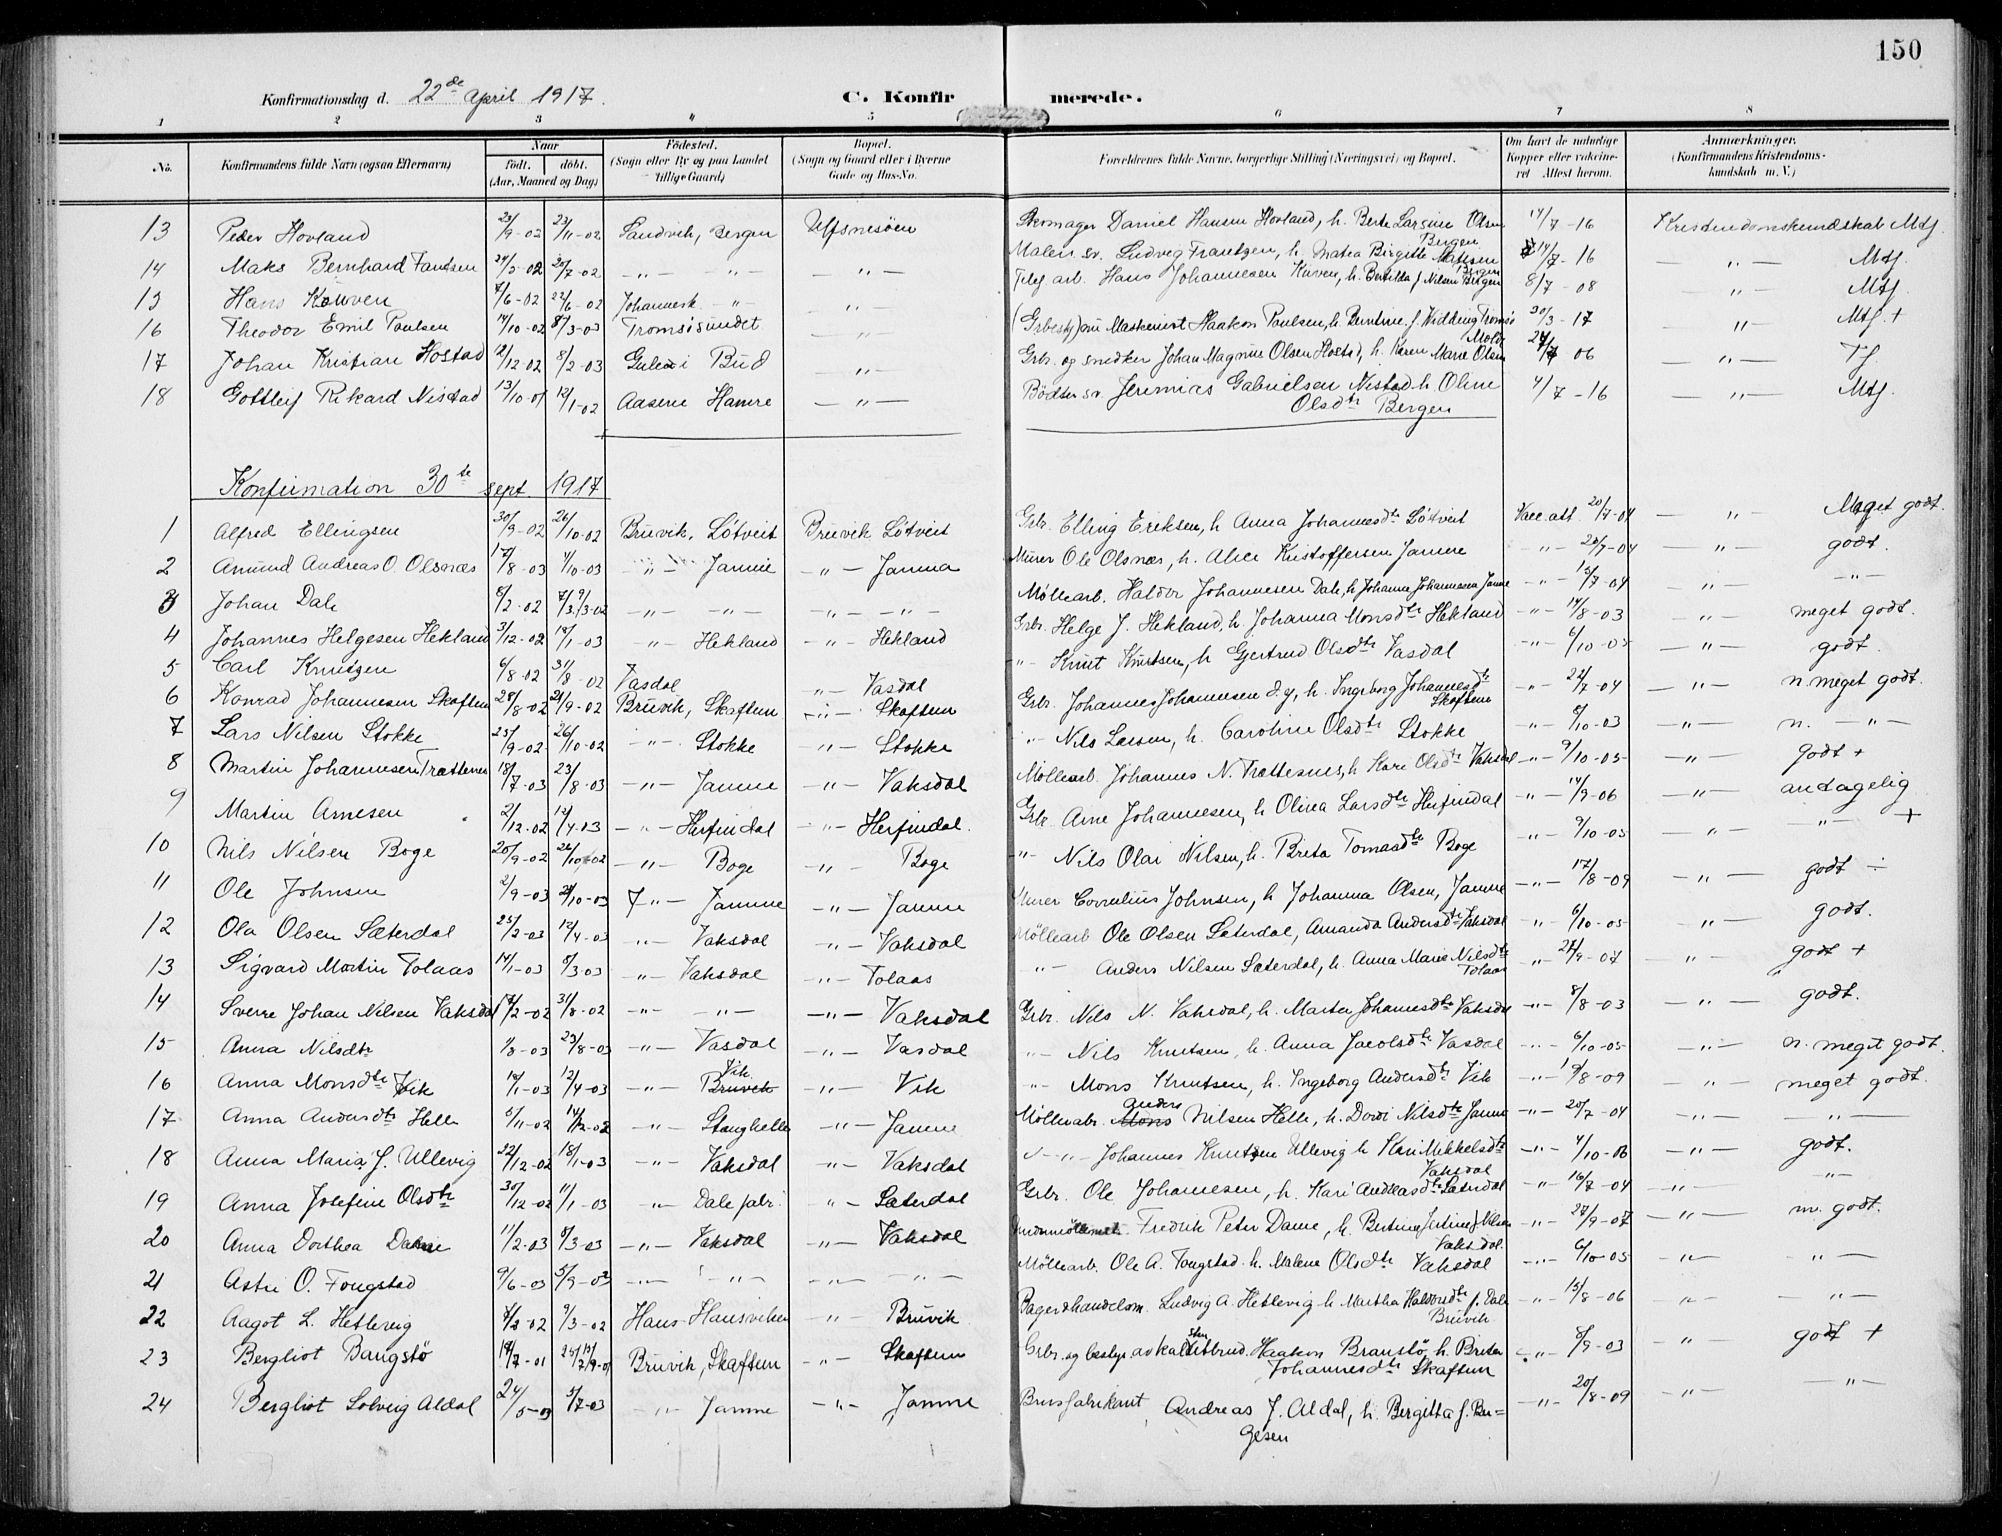 150
Konfirmationsdag d. 22de April 1917. C. Konfirmerede.
1 2 3 " 5 6 7 8
No. Konfirmandens fulde Navn (ogsaa Efternavn) Naar født. døbt. (Aar, Maaned og Dag) Fødested. (Sogn eller By og paa Landet tillige Gaard) Bopæl. (Sogn og Gaard eller i Byerne Gade og Hus-No. Forældrenes fulde Navne, borgerlige Stilling (Næringsvei) og Bopæl. Om havt de naturlige Kopper eller vakcineret Attest herom. Anmærkninger. (Konfirmandens Kristendomskundskab m. V.)
13 Peder Hovland 23/9-02 23/11-02 Sandvik, Bergen Ulfsnesøen Skomager Daniel Hansen Hovland, h. Berte Larsine Olsen Bergen 14/7-16 Kristendomskundskab Mtf.
14 Maks Bernhard Fantsen 24/5-02 20/7-02 -"- " -"- Maler sv. Ludvig Frantzen, h. Matea Birgitte Matisen Bergen 14/7-16 -"- Mtf.
15 Hans Kouven 7/6-02 22/6-02 Johannesk. -"- -"- Telef arb. Hans Johannesen Kuven, h. Bertilda f. Nilsen Bergen 8/7-08 -"- Mtf.
16 Theodor Emil Paulsen 14/10-02 8/3-03 Tromsøsundet " (Grbesty) nu Maskenist Haakon Paulsen, h. Berntine f. Kidding Tromsø 30/3-17 -"- Mtf. +
17 Johan Kristian Hostad 12/12 02 8/2-03 Gulen i Bud -"- Grb. og snedker Johan Magnus Olsen Hostad, h. Karen Marie Olsen Molde 24/7 06 -"- Tf.
18 Gottleif Rikard Nistad 13/10-01 12/1-02 Aasene Hamre -"- Bødker sv. Jeremias Gabrielsen Nistad h. Oline Olsdtr Bergen 4/7-16 -"- Mtf.
Konfirmation 30te sept. 1917
1 Alfred Ellingsen 30/9-02 26/10-02 Bruvik, Løtveit Bruvik Løtveit Grbr. Elling Eriksen, h. Anna Johannesdtr Løtveit Vacc. att. 20/7-04 -"- Meget godt.
2 Amund Andreas O. Olsnæs 17/8-03 4/10-03 -"- Jamne -"- Jamna Murer Ole Olsnæs, h. Alice Kristoffersen Jamne -"- 20/7-04 -"- godt.
3 Johan Dale 8/2-02 9/3-02 -"- -"- -"- -"- Møllearb. Haldor Johannesen Dale, h. Johanna Johannesen Jamne -"- 15/7-04 " -"-
4 Johannes Helgesen Hekland 3/12-02 18/1-03 -"- Hekland -"- Hekland Grbr. Helge J. Hekland, h. Johanna Monsdtr Hekland -"- 14/8-03 -"- meget godt.
5 Carl Knutzen 6/8-02 31/8-02 Vasdal -"- Vasdal -"- Knut Knutsen, h. Gjertrud Olsdtr Vasdal -"- 6/10-05 -"- godt.
6 Konrad Johannesen Skaftun 28/8-02 21/9-02 Bruvik, Skaftun -"- Skaftun Grbr. Johannes Johannesen d.y., h. Ingeborg Johannesdtr Skaftun -"- 22/7-04 -"- n. meget godt.
7 Lars Nilsen Stokke 25/9-02 26/10-02 -"- Stokke -"- Stokke -"- Nils Larsen, h. Caroline Olsdtr Stokke -"- 8/10-03 -"- n. -"-
8 Martin Johannesen Trættenes 18/7-03 23/8-03 -"- Jamne -"- Vaksdal Møllearb. Johannes N. Trættesnes, h. Kari Olsdtr Vaksdal -"- 9/10-05 -"- godt +
9 Martin Arnesen 2/12-02 12/4-03 -"- Herfindal -"- Herfindal. Grbr. Arne Johannesen, h. Olina Larsdtr Herfindal -"- 14/9-06 -"- antagelig
10 Nils Nilsen Boge 20/9-02 26/10-02 -"- Boge -"- Boge -"- Nils Olai Nilsen, h. Brita Tomasdtr Boge -"- 9/10-05 -"- -"- +
11 Ole Johnsen 2/9-03 21/10-03 -"- Jamne -"- Jamne Murer Cornelius Johnsen, h. Johanna Olsen, Jamne -"- 17/8-09 -"- godt ÷
12 Ola Olsen Sæterdal 25/2-03 12/4-03 -"- Vaksdal -"- Vaksdal Møllearb Ole Olsen Sæterdal, Amanda Andersdtr Vaksdal -"- 6/10-05 -"- godt.
13 Sigvard Martin Tolaas 14/1-03 8/3-03 -"- Vaksdal -"- Tolaas -"- Anders Nilsen Sæterdal, h. Anna Marie Nilsdtr Tolaas -"- 27/9-07 -"- godt +
14 Sverre Johan Nilsen Vaksdal 31/8-02 -"- -"- -"- Vaksdal Grbr. Nils N. Vaksdal, h. Marta Johannesdtr Vaksdal -"- 8/8-03 -"- godt.
15 Anna Nilsdtr 1/8-03 23/8-03 -"- Vasdal -"- Vasdal -"- Nils Knutsen, h. Anna Jacobsdtr Vasdal -"- 6/10-05 -"- n. meget godt.
16 Anna Monsdtr Vik 12/4-03 -"- Bruvik Vik. -"- Vik -"- Mons Knutsen, h. Ingeborg Andersdtr Vik -"- 19/8-09 -"- meget godt.
17 Anna Andersdtr Helle 5/11-02 -"- Stanghelle -"- Jamne Møllearbr. Mons Anders Nilsen Helle, h. Dordi Nilsdtr Jamne -"- 20/7-04 -"- -"-
18 Anna Maria J. Ullevig 22/12-02 18/1-03 -"- Vaksdal -"- Vaksdal -"- Johannes Knutsen Ullevig h Kari Mikkelsdtr Vaksdal -"- 4/10-06 -"- godt.
19 Anna Josefine Olsdtr 30/12-02 11/1-03 -"- Dale fabr. -"- Sæterdal Grbr. Ole Johannesen, h. Kari Andreasdtr Sæterdal -"- 16/7-04 -"- -"-
20 Anna Dorthea Dame 11/2-03 8/3-03 -"- Vaksdal -"- Vaksdal Fredrik Peter Dame, h. Bertine Vaksdal. -"- 27/9-07 -"- m. godt.
21 Astri O. Fougstad 9/6-03 5/9-03 -"- -"- -"- -"- Møllearb. Ole A. Fougstad h. Malene Olsdtr Vaksdal -"- 6/10-05 -"- -"-
22 Aagot L. Hettevig 9/3-02 Haus Hausviken -"- Bruvik Bager & handelsm. Ludvig A. Hettevig h Martha Haldorsdtr f. Dale Bruvik -"- 15/8-06 -"- -"-
23 Bergliot Bangstø 18/7-01 Bruvik, Skaftun -"- Skaftun Grbr. og bestyr. av kalkstenbrud. Haakon Branstø, h. Brita Johannesdtr Skaftun -"- 8/9-03 -"- godt +
24 Bergliot Solveig Aldal 24/5-03 5/7-03 -"- Jamne -"- Jamne Brusfabrikant Andreas J. Aldal, h. Bergitta f. Bergesen -"- 20/8-09 -"- -"-